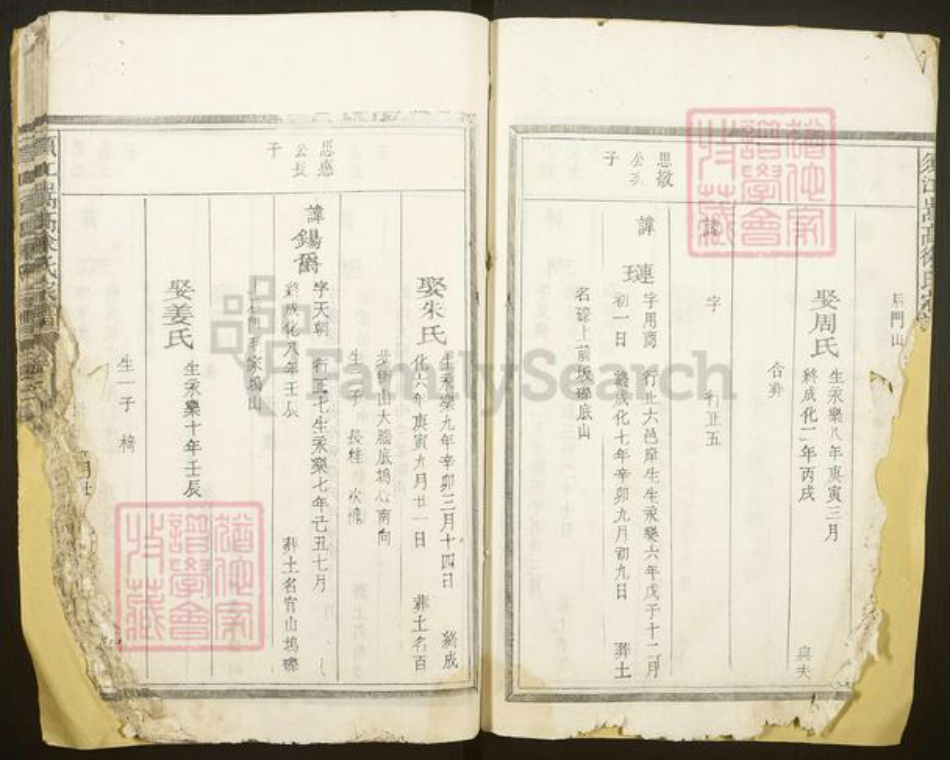 后門山
娶周氏
生永樂八年庚寅三月
終成化二年丙戌
與夫
合葬
諱
字
行正五
思敬
公次
子
諱璉
字用商 行正六邑庠生生永樂六年戊子十二月
初一日 終成化七年辛卯九月初九日 葬土
名磜上前坂磜底山
娶朱氏
生永樂九年辛卯三月十四日 終成
化六年庚寅九月廿一日 葬土名百
山大 底塢心南向
生 子 長桂 次槐
公長
子
諱錫爵
字天朝 行正七生永樂七年己丑七月
終成化八年壬辰 葬土名官山塢磜
后門 家塢山
娶姜氏
生永樂十年壬辰
月廿
生一子 椅
FamilySearch
猶他家
譜學會
收藏
猶他家
譜學會
收藏